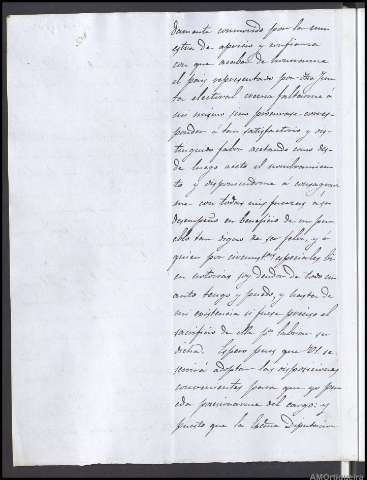 damente conmovido por la mu
estra de aprecio y confianza
con que acaban de honrarme
el pais representado por dha Jun
ta electoral creeria faltarme á
mi mismo sino procurase corres
ponder á tan satisfactorio y dis-
tinguido fabor acetando como des-
de luego aceto el nombramien
to y disponiendome á consagrar
me con todas mis fuerzas a su
desempeño en beneficio de un pue
blo tan digno de ser feliz, y á
quien por circunst.s especiales bi
en notorias soy deudor de todo cu
anto tengo y puedo, y hasta de
mi existencia si fuese preciso el
sacrificio de ella p.a labrar su
dicha. Espero pues que VI. se
servirá adoptar las disposiciones
convenientes para que yo pue
da posesionarme del cargo: y
puesto que la Diputacion
AMOrtigueira